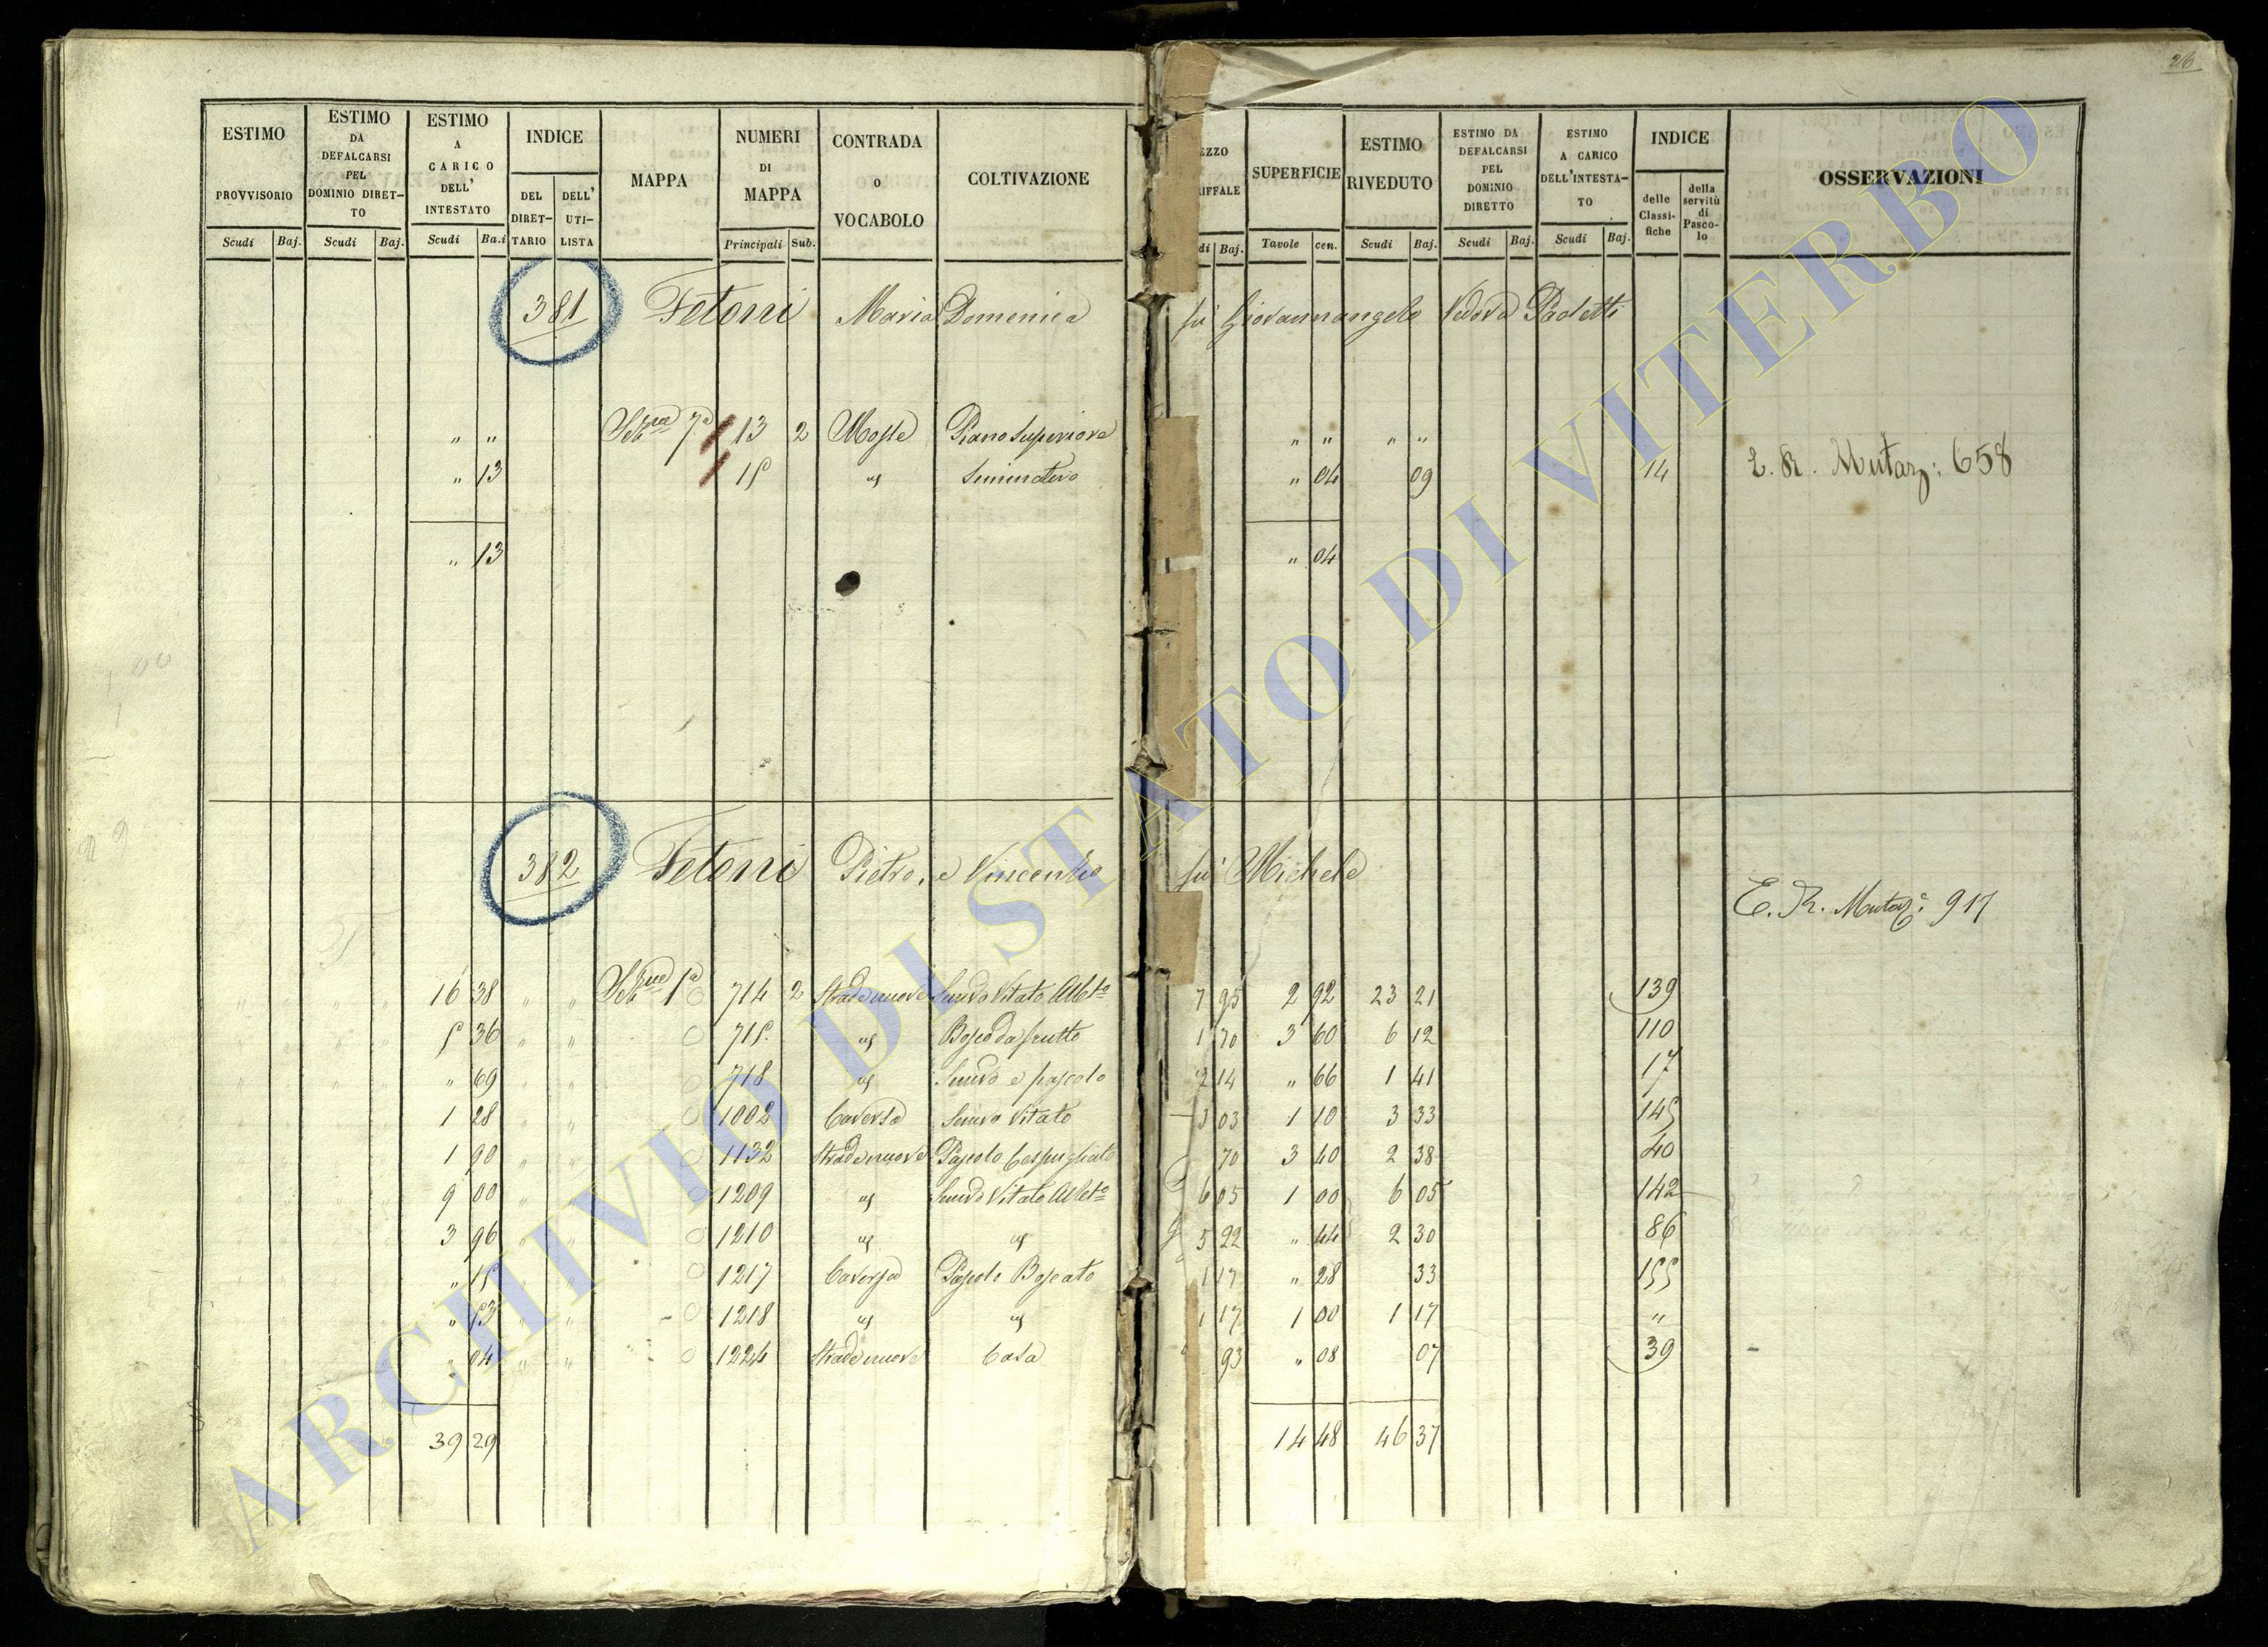 26
ESTIMO PROVVISORIO Scudi Baj.
ESTIMO DA DEFALCARSI PEL DOMINIO DIRETTO Scudi Baj.
ESTIMO A CARICO DELL' INTESTATO Scudi Ba.i
INDICE DEL DIRETTARIO DELL' UTILISTA
MAPPA
NUMERI DI MAPPA Principali Sub.
CONTRADA O VOCABOLO
COLTIVAZIONE
EZZO RIFFALE di Baj.
SUPERFICIE Tavole cen.
ESTIMO RIVEDUTO Scudi Baj.
ESTIMO DA DEFALCARSI PEL DOMINIO DIRETTO Scudi Baj.
ESTIMO A CARICO DELL'INTESTATO Scudi Baj.
INDICE delle Classifiche della servitù di Pascolo
OSSERVAZIONI
381 Fetoni Maria Domenica fu Giovannangelo Vedova Paoletti
" " Sez.ne 7a 13 2 Mosse Piano Superiore " " " "
" 13 15 " Seminativo " 04 09 14 L. R. Mutaz: 658
" 13 " 04
382 Fetoni Pietro, e Vincenzo fu Michele
E. R. Mutaz: 917
16 38 " " Sez.ne 1a 714 2 Strade nuove Semvo Vitato Albto 7 95 2 92 23 21 139
5 36 " " 715 " Bosco da frutto 1 70 3 60 6 12 110
" 69 " " 718 " Semvo e pascolo 2 14 " 66 1 41 17
1 28 " " 1002 Caversa Semvo Vitato 3 03 1 10 3 33 145
1 90 " " 1132 Strade nuove Pascolo Cespugliato 70 3 40 2 38 40
9 00 " " 1209 " Semvo Vitato Albto 6 05 1 00 6 05 142
3 96 " " 1210 " " 5 22 " 44 2 30 86
" 15 " " 1217 Caversa Pascolo Boscato 1 17 " 28 33 155
" 53 " " 1218 " " 1 17 1 00 1 17 "
" 04 " " 1224 Strade nuove Casa 93 " 08 07 39
39 29 14 48 46 37
ARCHIVIO DI STATO DI VITERBO